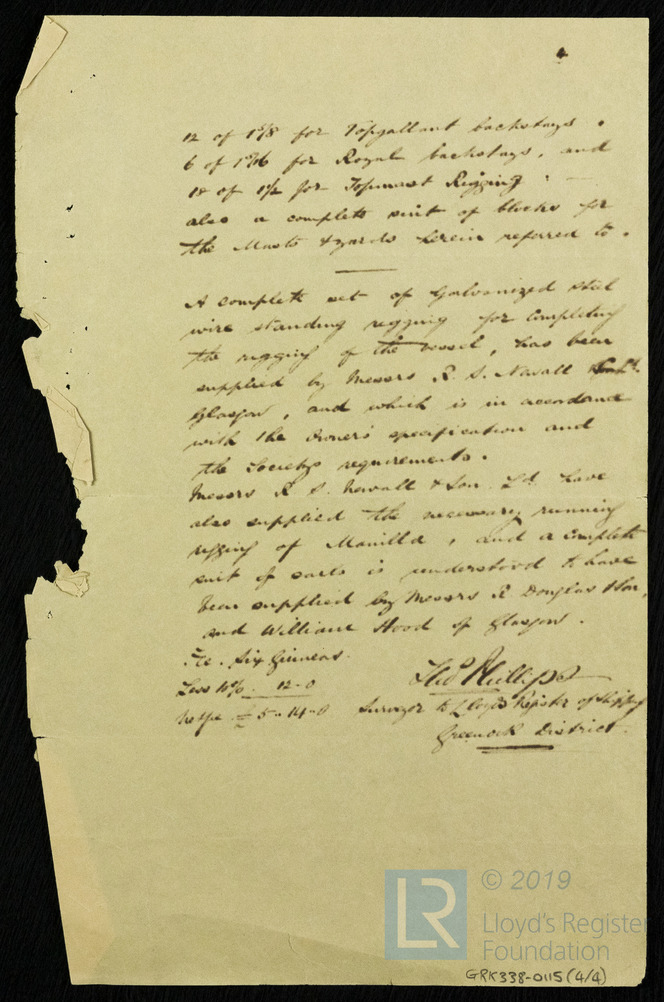 4
12 of 1 5/8 for Topgallant backstays .
6 of 1 9/16 for Royal backstays, and
18 of 1 1/2 for Topmast Rigging :
also a complete suit of blocks for
the Masts & yards herein referred to .
A complete set of Galvanized steel
wire standing rigging for completing
the rigging of the vessel, has been
supplied by Messrs R. S. Newall
Glasgow, and which is in accordance
with the Owner's specification and
the Society's requirements.
Messrs R. S. Newall & Son Ld. have
also supplied the necessary running
rigging of Manilla, and a complete
suit of sails is understood to have
been supplied by Messrs R Douglas & Son,
and William Hood of Glasgow.
Fee. Six Guineas.
Less 10%. 12-0
£ 5-14-0
Thos Phillips
Surveyor to Lloyd's Register of Shipping
Greenock District.
LR
© 2019
Lloyd's Register
Foundation
GRK338-0115(4/4)